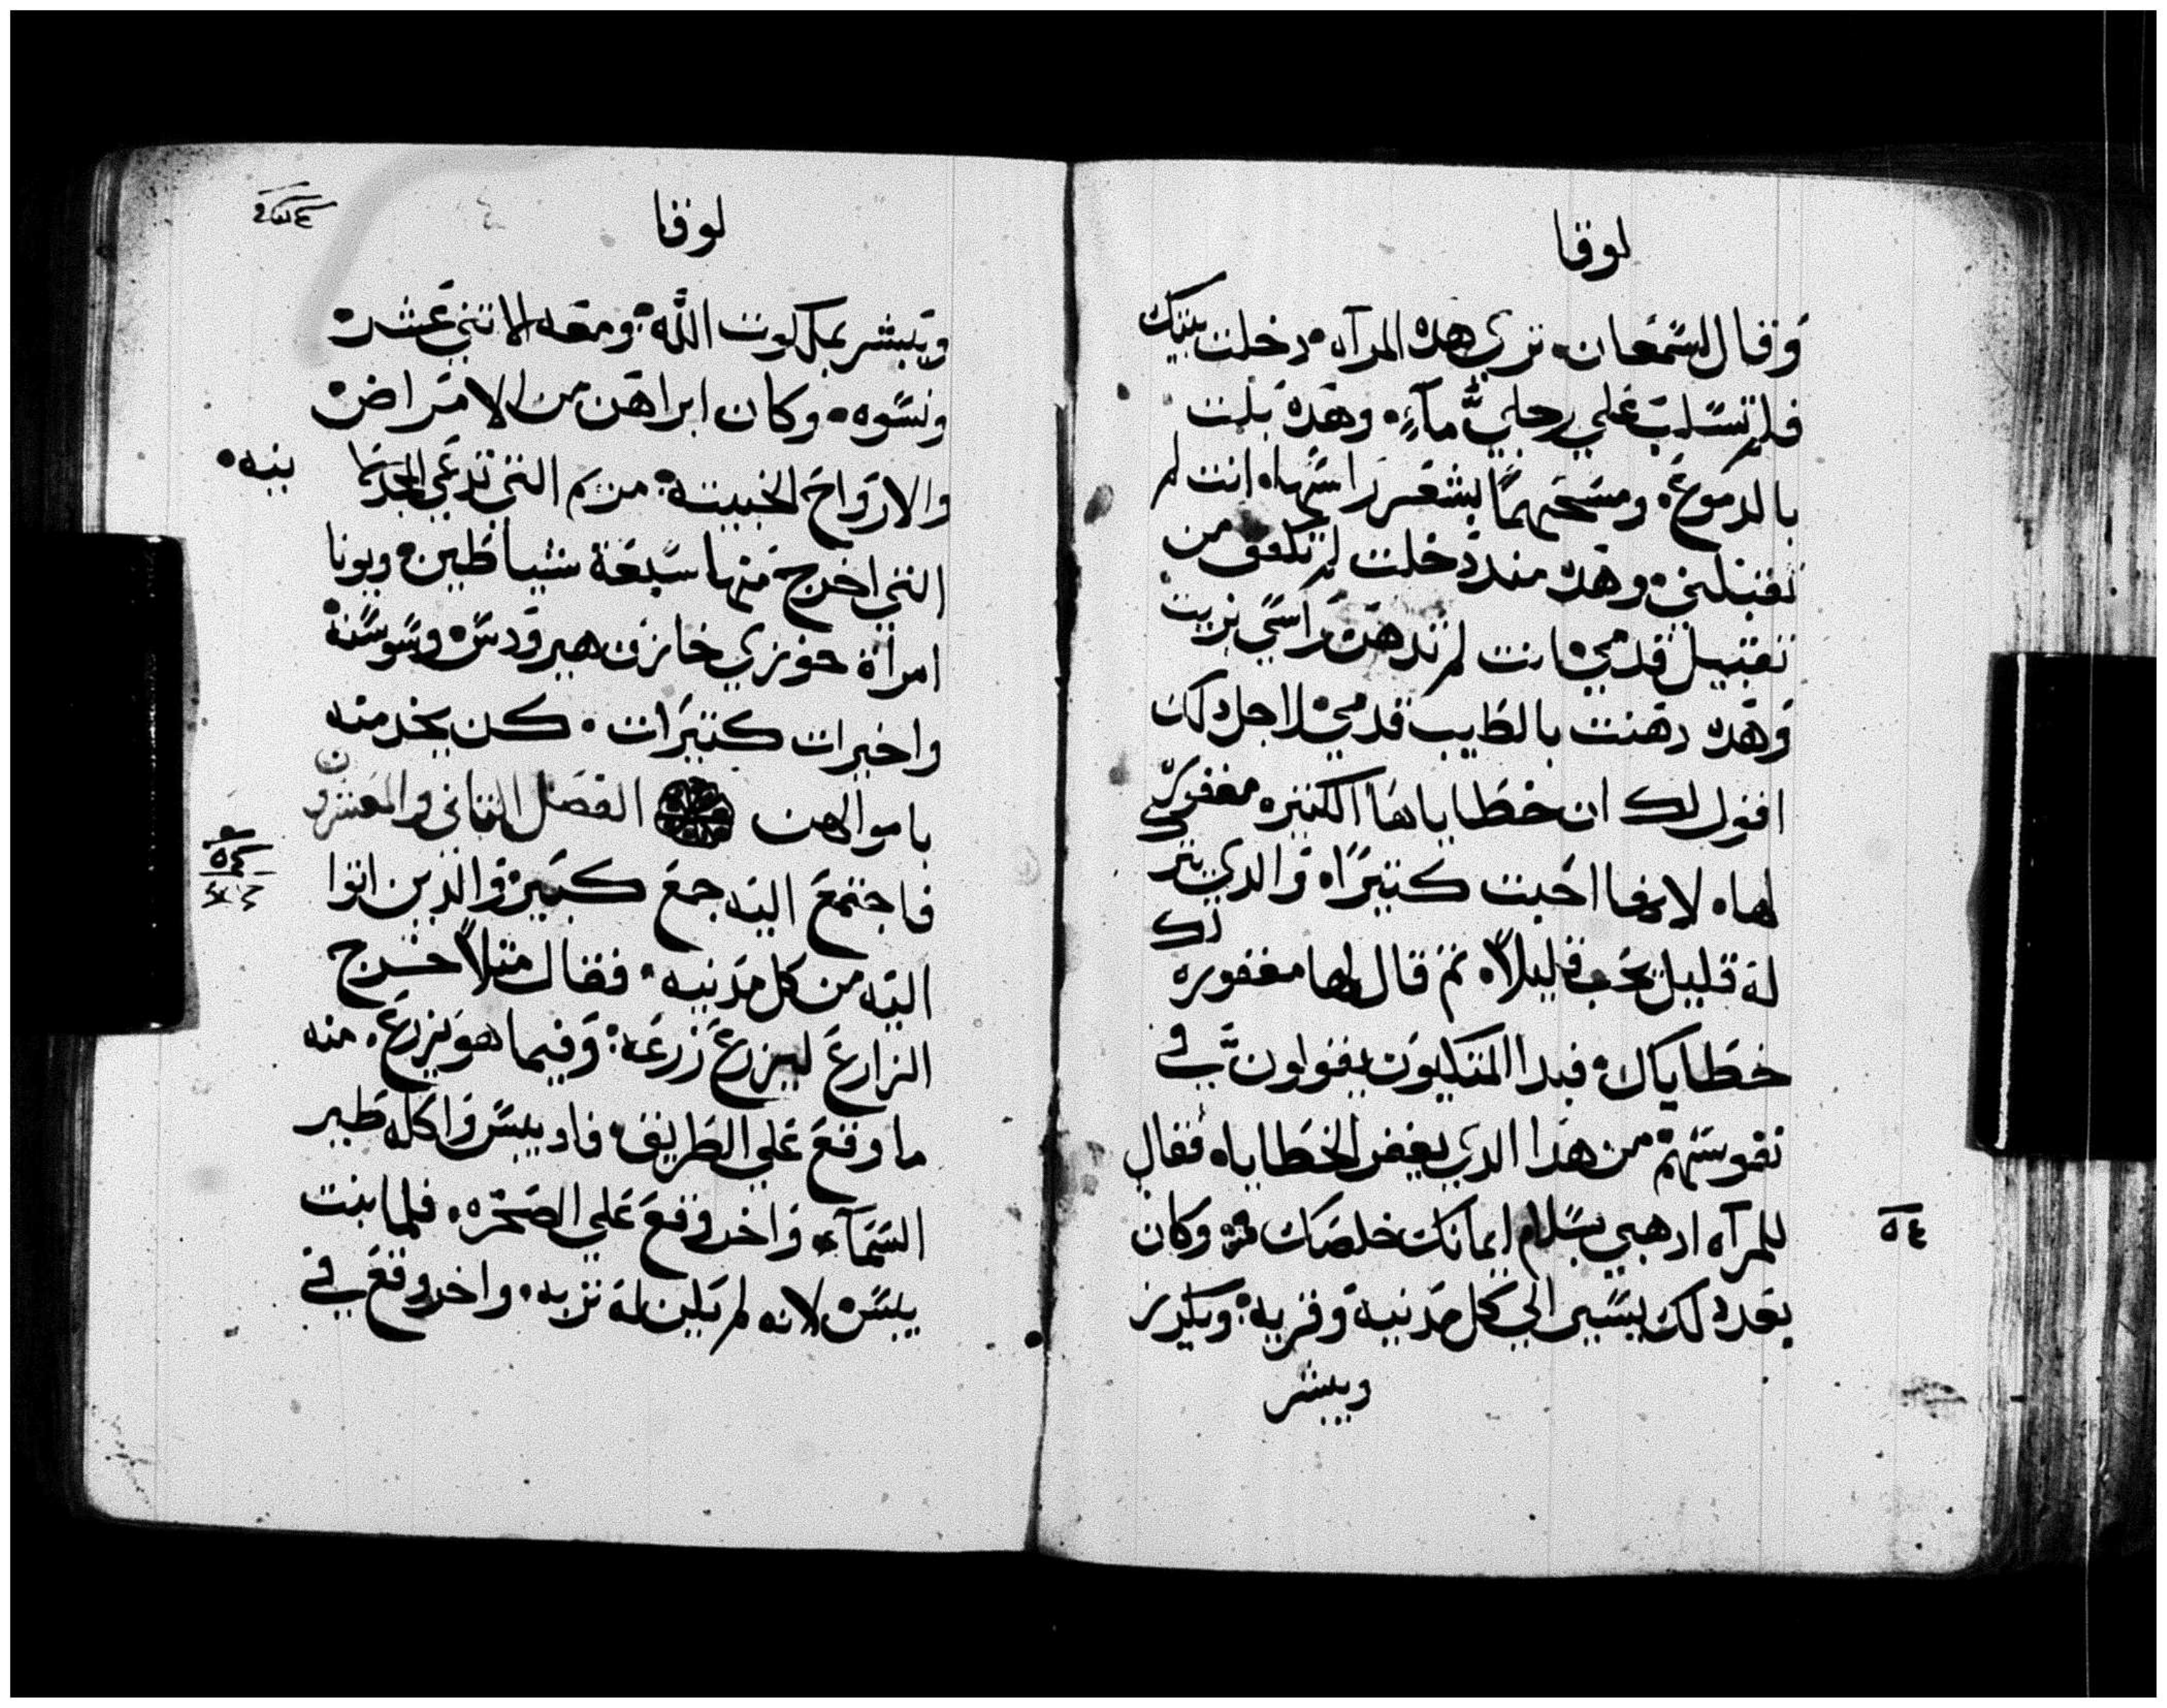 لوقا
وقال لسمعان تري هده المرآه دخلت بيتك
فلم تسكب علي رجليّ مآءٍ وهده بلت
بالدموع ومسحتهما بشعر راسها انت لم
تقبلني وهده مند دخلت لم تكفف من
تقبيل قدمي انت لم تدهن راسي بزيت
وهده دهنت بالطيب قدمي لاجل دلك
اقول لك ان خطاياها الكتيره مغفوره
لها لانها احبت كتيرًا والدي يترك
له قليل يحب قليلاً تم قال لها مغفوره لك
خطاياك فبدا المتكيون يقولون في
نفوسهم من هدا الدي يغفر الخطايا فقال
للمرآه ادهبي بسلام ايمانك خلصك وكان
٥٤
بعد دلك يسير الي كل مدينية وقريه ويكرز
ويبشر
لوقا
ويبشر بملكوت اللّه ومعه الاتني عشر
ونسوه وكان ابراهن من الامراض
والارواح الخبيته مريم التي تدعي المجدلينيه
التي اخرج منها سبعة شياطين ويونا
امراة خوزي خازن هيرودس وسوسنة
واخيرات كتيرات كن يخدمنه
باموالهن الفصل التاني والعشرون
فاجتمع اليه جمع كبير والذين اتوا
٥٥
اليه من كل مدنييه فقال متلاً خرج
الزارع ليزرع زرعه وفيما هو يزرع منه
ما وقع علي الطريق فاديس واكله طير
السمآء واخر وقع علي الصخره فلما نبت
يبس لانه لم يكين له تربه واخر وقع في